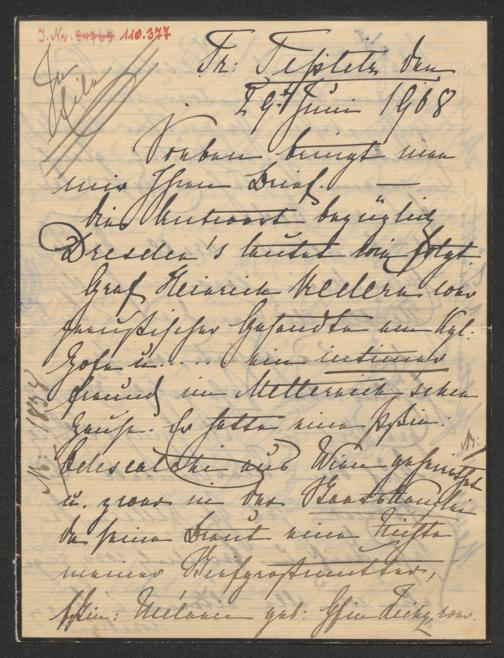 J. No. 110.377
In
Eile
Tr: Teßtetz den
29t Juni 1908
Soeben bringt man
mir Ihren Brief. —
Die Antwort bezüglich
Dresden's lautet wie folgt
Graf Heinrich Redern war
preußischer Gesandte am Kgl:
Hofe u..... ein intimer
Freund im Metternich'schen
Hause. Er hatte eine Pssin.
Odescalchi aus Wien geheirathet
u. zwar in der Staatskanzlei
da seine Braut eine Nichte
meiner Stiefgroßmutter,
Fstin: Mélanie geb: Gfin Zichy war.
NB: 1834
NB: